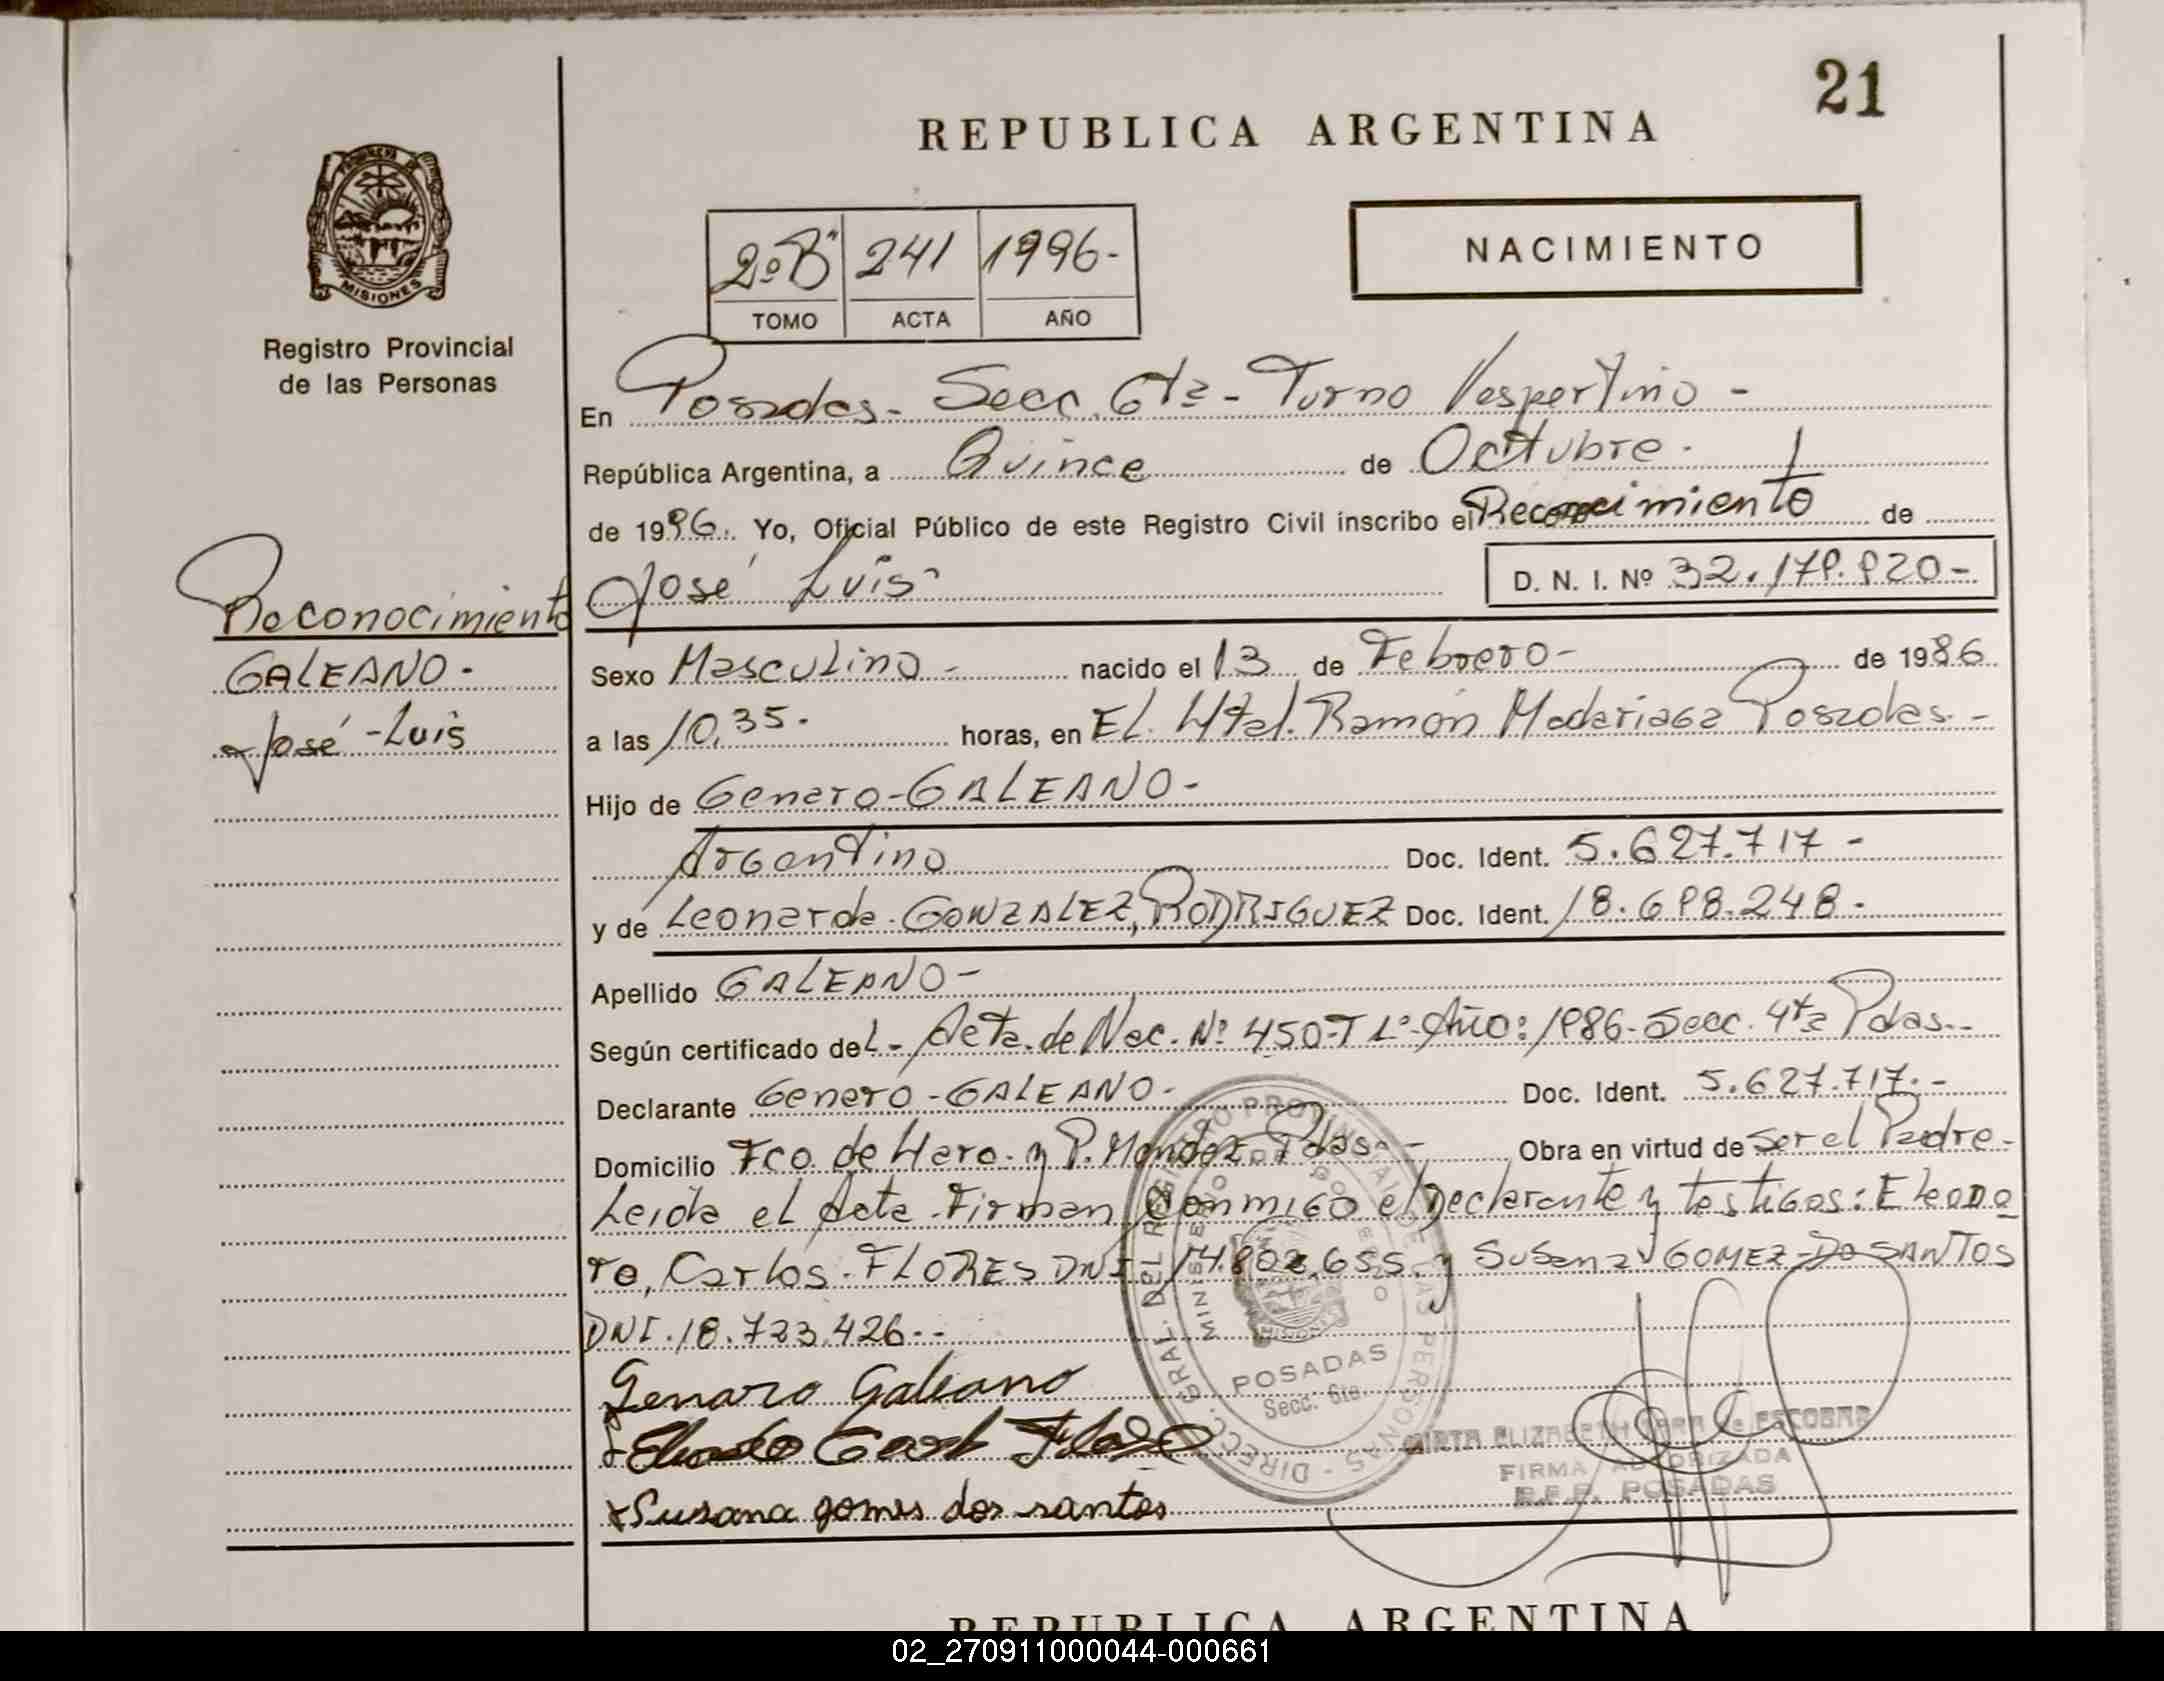 21
REPUBLICA ARGENTINA
PROVINCIA DE
MISIONES
Registro Provincial
de las Personas
2º"B" 241 1996-
TOMO ACTA AÑO
NACIMIENTO
En Posadas- Secc. 6ta- Turno Vespertino -
República Argentina, a Quince de Octubre.
de 1996. Yo, Oficial Público de este Registro Civil inscribo el Reconocimiento de
José Luis- D. N. I. Nº 32.179.920-
Reconocimiento
GALEANO-
José-Luis
Sexo Masculino- nacido el 13 de Febrero- de 1986
a las 10,35. horas, en El. Htal. Ramón Madariaga Posadas.-
Hijo de Genaro-GALEANO-
Argentino Doc. Ident. 5.627.717-
y de Leonarda-GONZALEZ, RODRIGUEZ Doc. Ident. 18.698.248-
Apellido GALEANO-
Según certificado del- Acta de Nac. Nº 450-Tº Año: 1986- Secc. 4ta Pdas.-
Declarante Genaro-GALEANO- Doc. Ident. 5.627.717.-
Domicilio Fco de Haro- y P. Mendez Pdas.- Obra en virtud de ser el Padre-
Leida el Acta Firman Conmigo el Declarante y testigos: Eleodo
ro, Carlos-FLORES DNI 14.802.655. y Susana GOMEZ-DOSANTOS
DNI.18.723.426--
Genaro Galeano
Carl Flores
x Susana gomes dos santos
DIRECC. GRAL. DEL REGISTRO PROVINCIAL DE LAS PERSONAS -
MINISTERIO DE GOBIERNO
MISIONES
POSADAS
Secc. 6ta.
ELIZABETH de ESCOBAR
FIRMA AUTORIZADA
POSADAS
REPUBLICA ARGENTINA
02_270911000044-000661